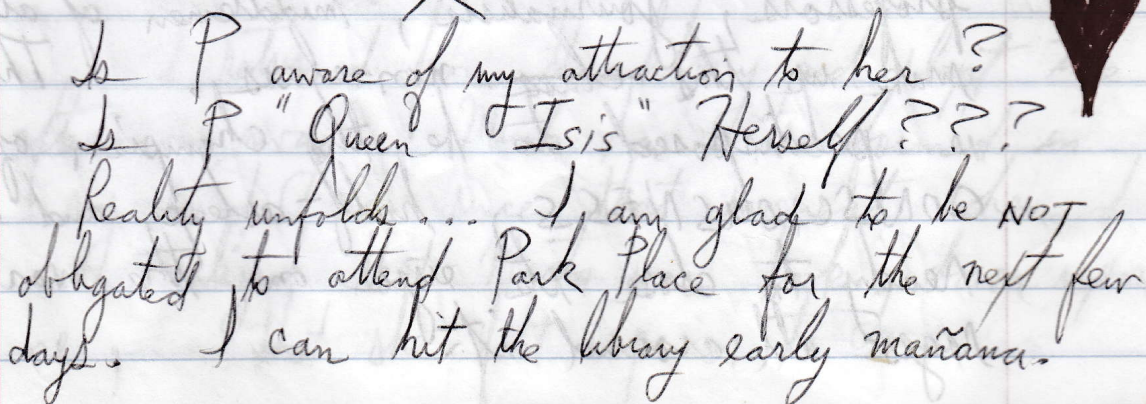 Is P aware of my attraction to her?
Is P "Queen Isis" Herself ???
Reality unfolds... I am glad to be NOT
obligated to attend Park Place for the next few
days. I can hit the library early mañana.